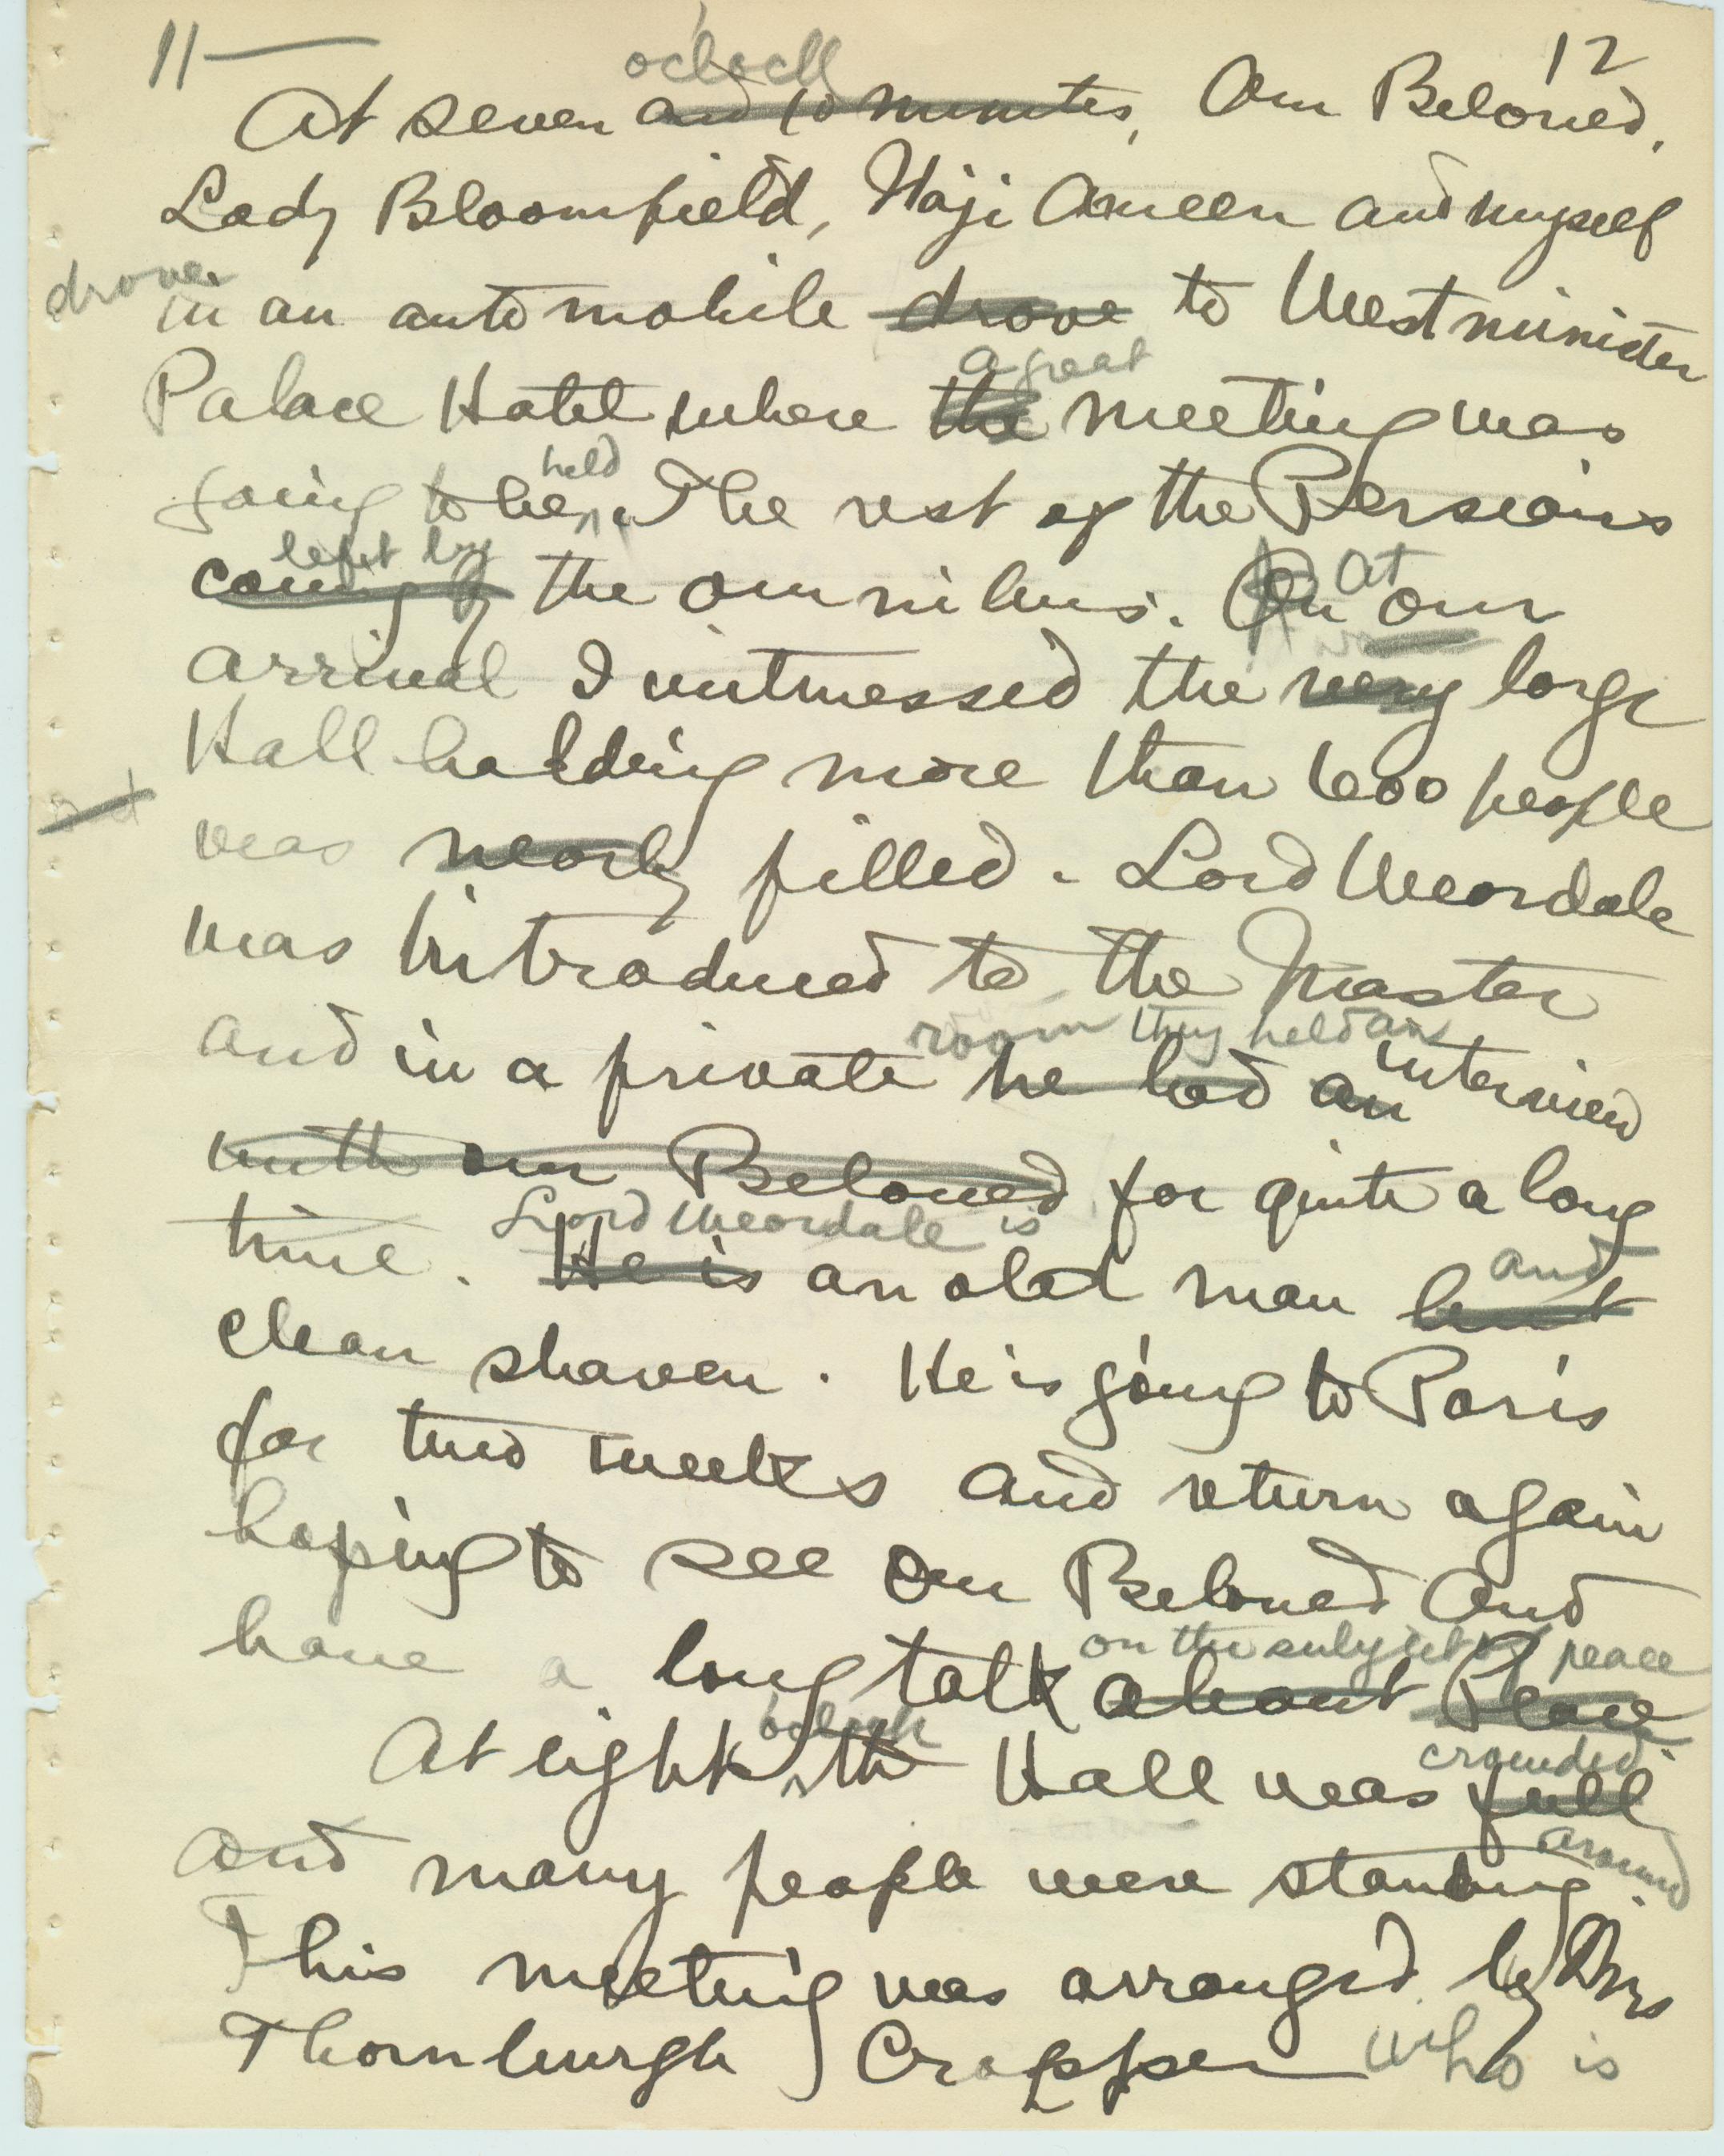 11— 12
o'clock
At seven and 10 minutes, Our Beloved,
Lady Bloomfield, Haji Ameen and myself
drove
in an automobile drove to Westminister
a great
Palace Hotel where the meeting was
held
going to be. The rest of the Persians
left by
coming by the omnibus. On at our
arrival I witnessed the very large
Hall holding more than 600 people
was nearly filled. Lord Weardale
was introduced to the Master
room they held an
and in a private he had an interview
with our Beloved for quite a long
Lord Weardale is
time. He is an old man but and
clean shaven. He is going to Paris
for two weeks and return again
hoping to see Our Beloved and
on the subject of peace
have a long talk about Peace
o'clock crowded
At eight the Hall was full
around
and many people were standing.
This meeting was arranged by Mrs
Thornburgh Cropper who is